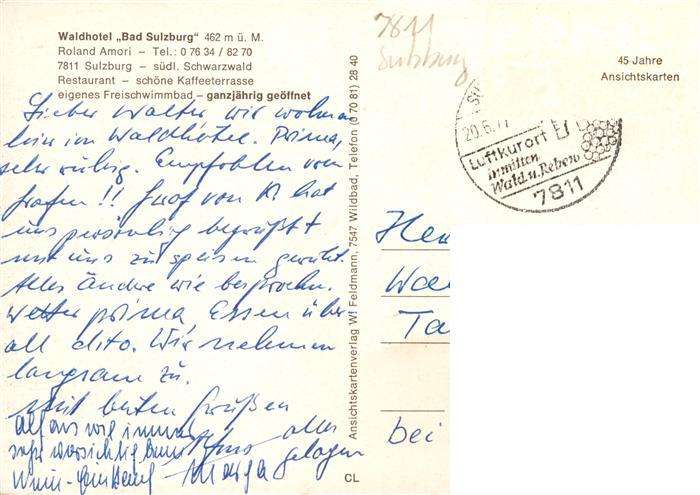 Waldhotel „Bad Sulzburg" 462 m ü. M.
Roland Amori – Tel.: 0 76 34 / 82 70
7811 Sulzburg – südl. Schwarzwald
Restaurant – schöne Kaffeeterrasse
eigenes Freischwimmbad – ganzjährig geöffnet
Lieber Walter, wir wohnen
hier im Waldhotel. Prima,
sehr ruhig. Empfohlen vom
Grafen!! Graf von K. hat
uns persönlich begrüßt
mit uns zu speisen geruht.
Alles Andre wie besprochen.
Wetter prima Essen über
all dito. Wir nehmen
langsam zu.
Mit besten Grüßen
alles
gelogen
Ansichtskartenverlag Wf Feldmann, 7547 Wildbad, Telefon (0 70 81) 28 40
CL
7811
Sulzburg
45 Jahre
Ansichtskarten
20.6.
Luftkurort
inmitten
Wald u. Reben
7811
Her
Wa
Ta
bei